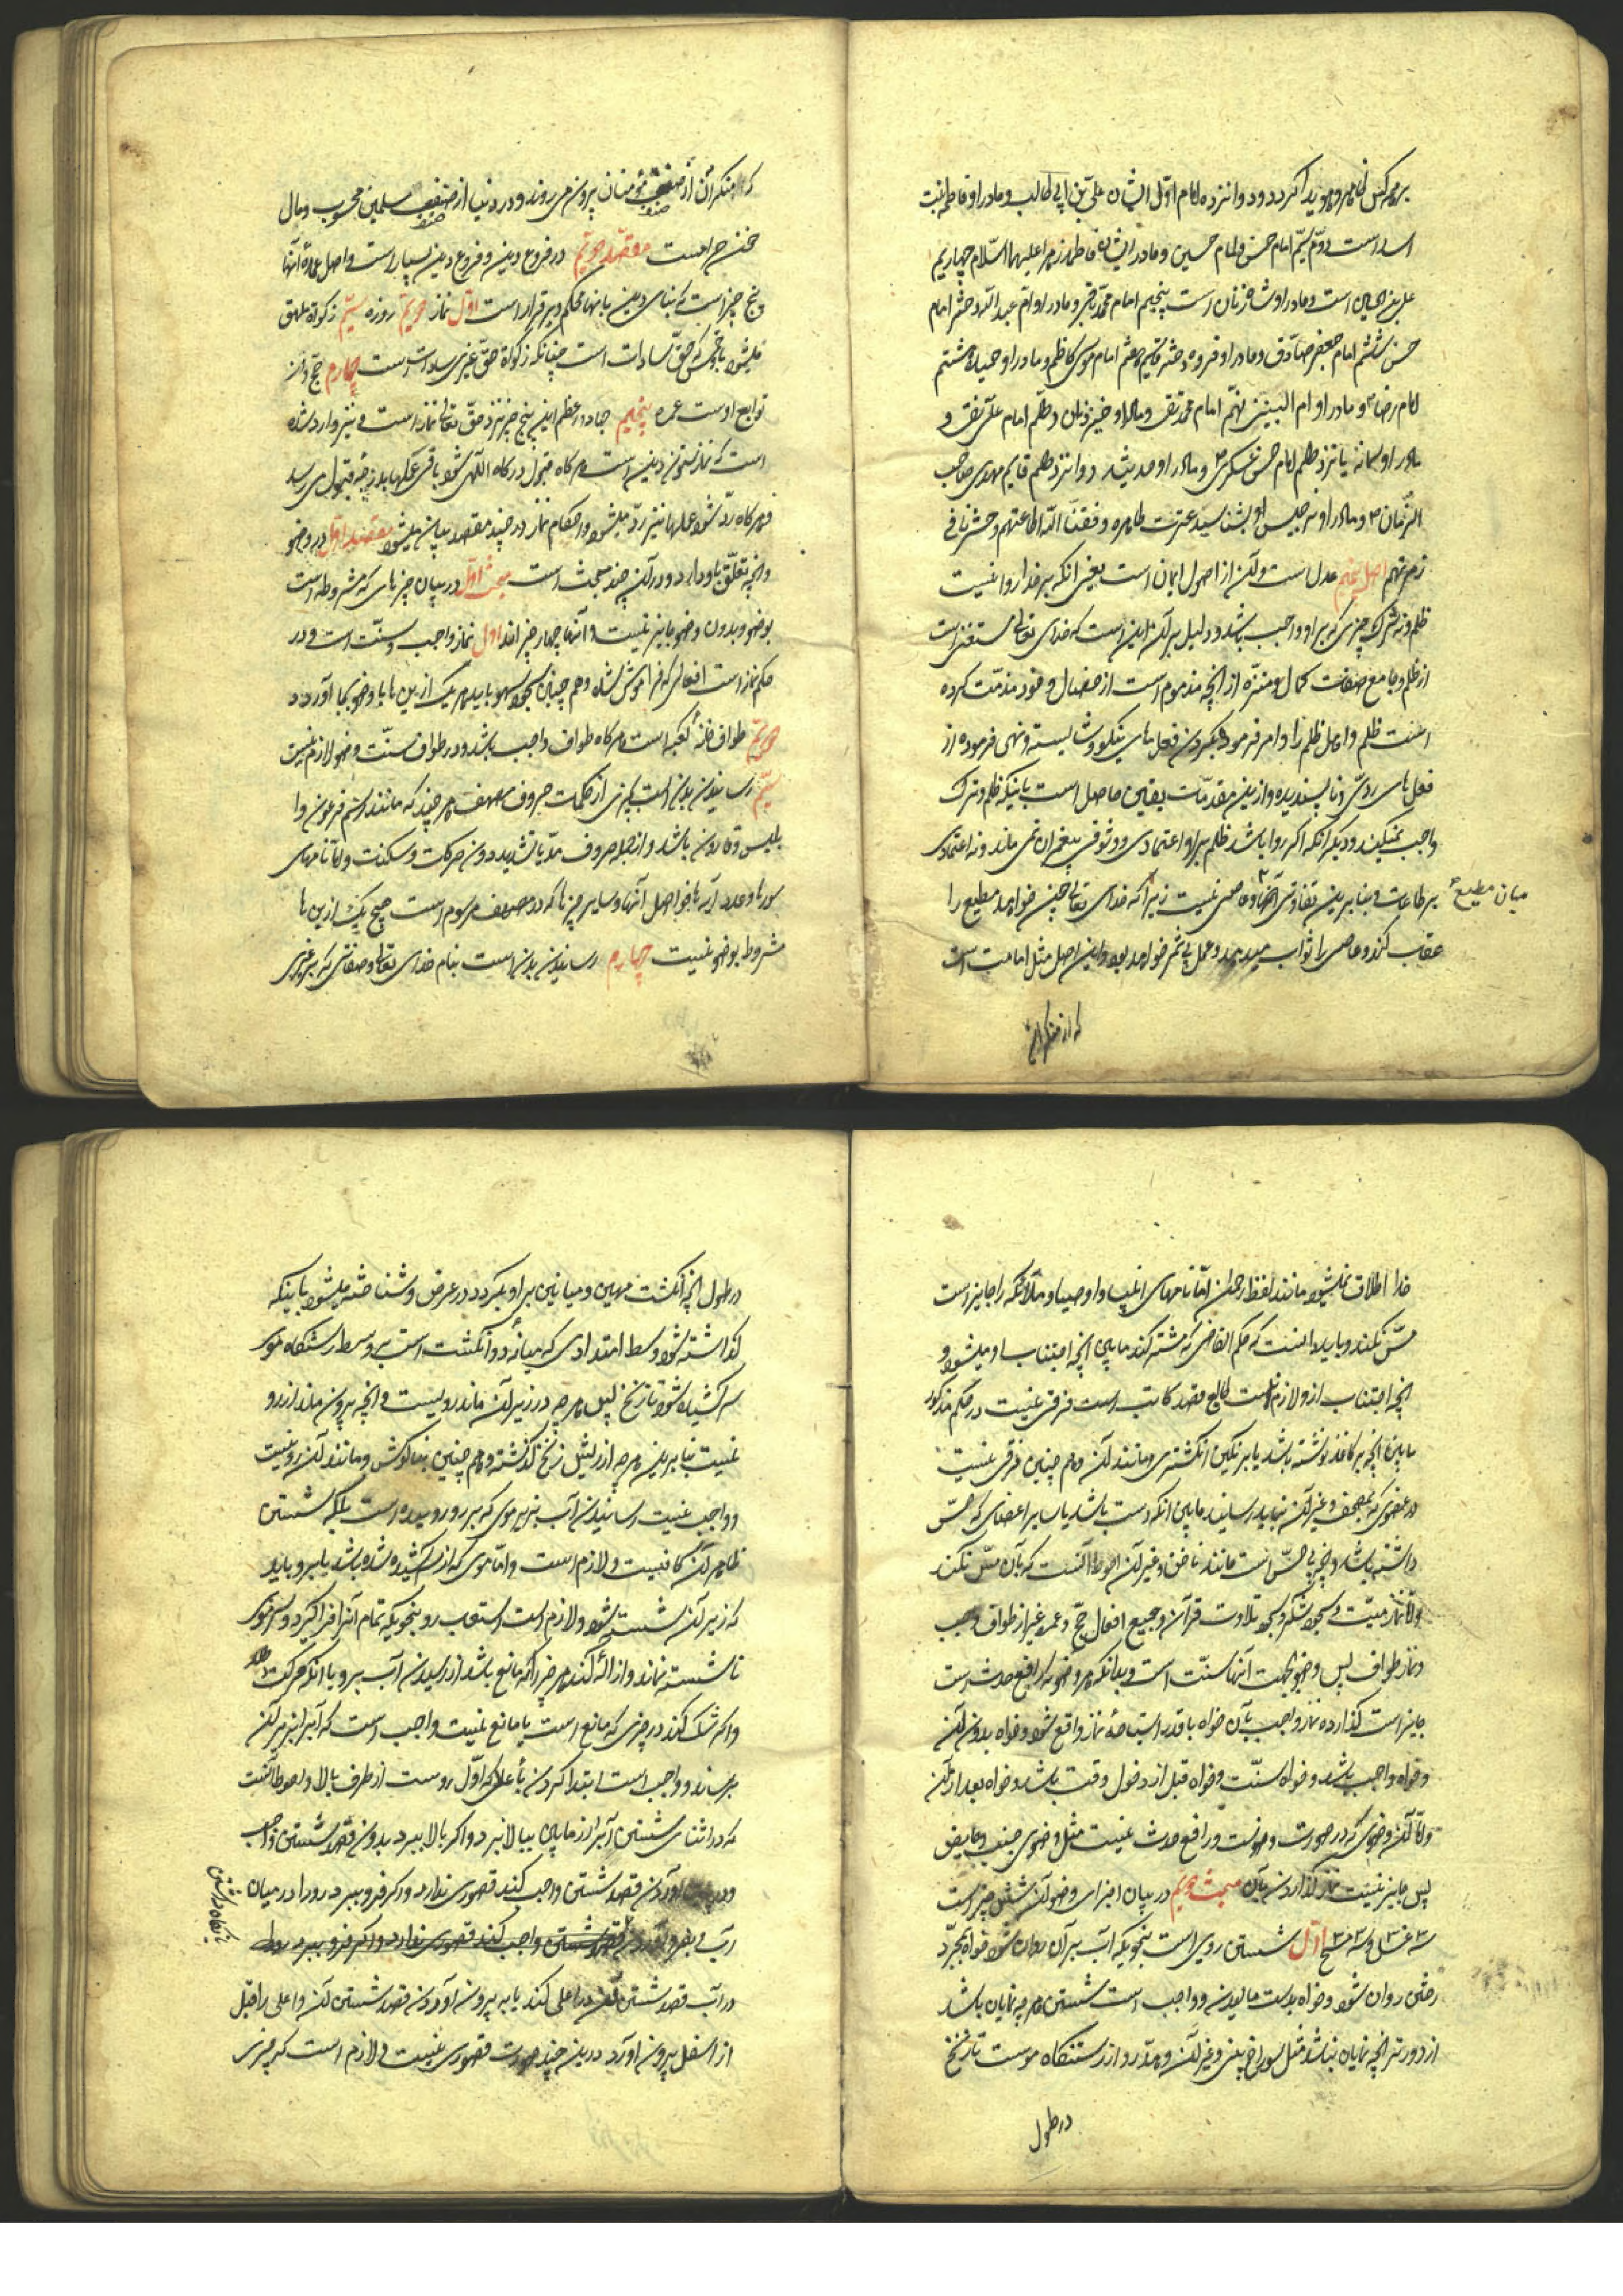 بر همه کس ظاهر و هویدا گردد و دوازده امام اول ایشان علی بن ابی طالب و مادر او فاطمه بنت
اسد است دویم سیم امام حسن و امام حسین و مادر ایشان فاطمه زهرا علیهما السلام چهاریم
علی بن الحسین است و مادر او شاه زنان است پنجیم امام محمد باقر و مادر او ام عبد الله دختر امام
حسن ششم امام جعفر صادق و مادر او فروه دختر قاسم هفتم امام موسی کاظم و مادر او حمیده هشتم
امام رضا و مادر او ام البنین نهم امام محمد تقی و مادر او خیزران دهم امام علی نقی و
مادر او سمانه یازدهم امام حسن عسکری و مادر او حدیثه دوازدهم قایم مهدی صاحب
الزمان و مادر او نرجس او بشناسید عترت طاهره وفقنا الله اطاعتهم و حشرنا فی
زمرتهم اصل پنجم عدل است و آن از اصول ایمان است یعنی انکه بر خدا روا نیست
ظلم و نه ترک چیزی که بر او واجب باشد و دلیل بر آن این است که خدای تعالی مستغنی است
از ظلم و جامع صفات کمال و منزه از انچه مذموم است از خصال و خود مذمت کرده
است ظلم و اهل ظلم را و امر فرموده بکردن فعل های نیکو و شایسته و نهی فرموده از
فعل های ردی و ناپسندیده و ازین مقدمات یقین حاصل است باینکه ظلم و ترک
واجب نمیکند و دیگر انکه اگر روا باشد ظلم بر او اعتمادی و وثوقی پیغمبران نمی ماند و نه اعتمادی
بر طاعات و بنابرین تفاوتی میان مطیع و عاصی نیست زیرا که خدای تعالی چنین خواهد مطیع را
عقاب کند و عاصی را ثواب میدهد و عمل بی ثمر خواهد بود و این اصل مثل امامت است
که از منکران
که منکر آن از صنف مؤمنان بیرون می روند و در دنیا از صنف مسلمین محسوب و مال
مقصد دویم در فروع دین و فروع دین بسیار است و اصل عمده آنها
پنج چیز است که بنای دین بانها محکم و برقرار است اول نماز دویم روزه سیم زکوة ملحق
میشود باو خمس که حق سادات است چنانکه زکوة حق غیر سادات است چهارم حج و از
توابع اوست عمره پنجیم جهاد و اعظم این پنج چیز نزد حق تعالی نماز است و نیز وارد شده
است که نماز ستون دین است هر گاه قبول درگاه اللهی شود باقی عملها بدرجه قبول می رسد
و هر گاه رد شود عملها نیز رد میشود و احکام نماز در چند مقصد بیان میشود مقصد اول در وضو
و انچه تعلق باو دارد و در آن چند مبحث است مبحث اول در بیان چیزهای که مشروط است
بوضو و بدون وضو جایز نیست و آنها چهار چیزاند اول نماز واجب و سنت است و در
حکم نماز است افعالی که فراموش شده و هم چنین سجود سهو باید هر یک ازین ها با وضو بجا آورد
دویم طواف خانه کعبه است هر گاه طواف واجب باشد و در طواف سنت وضو لازم نیست
سیم رسانیدن بدن است بچیزی از کلمات حروف مصحف هر چند که مانند اسم فرعون و ا
بلیس و قارون باشد و از جمله حروف مد یا تشدید دون حرکات و سکنات و اما نامهای
سورها و عدد آیه ها فواصل آنها و سایر چیزها که در مصحف مرسوم است هیچ یک ازین ها
مشروط بوضو نیست چهارم رسانیدن بدن است بنام خدای تعالی و صفاتی که بر غیر
خدا اطلاق نمیشود مانند لفظ رحمان اما نامهای انبیا و اوصیا و ملائکه را جایز است
مس نکند و باید دانست که حکم الفاضی که مشتبه کند مابین انچه اجتناب او میشود و
انچه اجتناب ازو لازم نیست تابع قصد کاتب است فرقی نیست در حکم مذکور
مابین انچه بر کاغذ نوشته باشد یا بر نگین انگشتری و مانند آن و هم چنین فرقی نیست
در عضوی که بمصحف و غیر آن نباید رسانید مابین انکه دست باشد یا سایر اعضای که حس
داشته باشد و انچه بی حس است مانند ناخن و غیر آن احوط آنست که بآن مس نکند
و اما نماز میت و سجود شکر و سجود تلاوت قرآن و جمیع افعال حج و عمره غیر از طواف واجب
و نماز طواف پس وضو بجهت آنها سنت است و بدانکه هر وضو که رافع حدث است
جایز است گذارده نماز واجب بآن خواه با قصد استباحة نماز واقع شود و خواه بدون آن
و خواه واجب باشد و خواه سنت و خواه قبل از دخول وقت باشد و خواه بعد از آن
و اما آن وضوی که در صورت وضوست و رافع حدث نیست مثل وضوی جنب و حایض
پس جایز نیست نماز گذاردن بآن مبحث دویم در بیان اجزای وضو آن شش چیز است
سه غسل و سه مسح اول شستن روی است بنحویکه آب بر آن روان شود خواه بمجرد
رختن روان شود و خواه بدست مالیدن و واجب است شستن هر چه نمایان باشد
از دور نه انچه نمایان نباشد مثل سوراخ بینی و غیر آن و حد رو از رستنگاه موست تا زنخ
در طول
در طول انچه انگشت مهین و میانین بر او بگردد در عرض و شناخته میشود باینکه
گذاشته شود وسط امتدادی که میانه دو انگشت است بر وسط رستنگاه موی
سر کشیده شود تا زنخ پس هر چه در زیر آن ماند رویست و انچه بیرون ماند از رو
نیست بنابرین هر چه از ریش زنخ گذشته و هم چنین بناگوش و مانند آن رو نیست
و واجب نیست رسانیدن آب بزیر موی که بر رو روییده است بلکه شستن
ظاهر آن کافیست و لازم است و اما موی که از سر کشیده شده باشد یا برو باید
که زیر آن شسته شود و لازم است استیعاب رو بنحویکه تمام آنرا فراگیرد و سر موی
ناشسته نماند و ازاله کند هر چیز را که مانع باشد از رسیدن آب برو یا انکه حرکت دهد
و اگر شک کند در چیزی که مانع است یا مانع نیست واجب است که آبرا بزیر آن
برساند و واجب است ابتدا کردن بأعلا که اول روست از طرف بالا و احوط آنست
که در اثنای شستن آبرا از مابین ببالا نبرد و اگر بالا ببرد بدون قصد شستن واجب
آوردن قصد شستن واجب کند قصوری ندارد و اگر فرو ببرد رو را در میان
آب
در آب قصد شستن آن در اعلی کند یا به بیرون آوردن قصد شستن آن و اعلی را قبل
از اسفل بیرون آورد درین چند صورت قصوری نیست و لازم است که چیزی